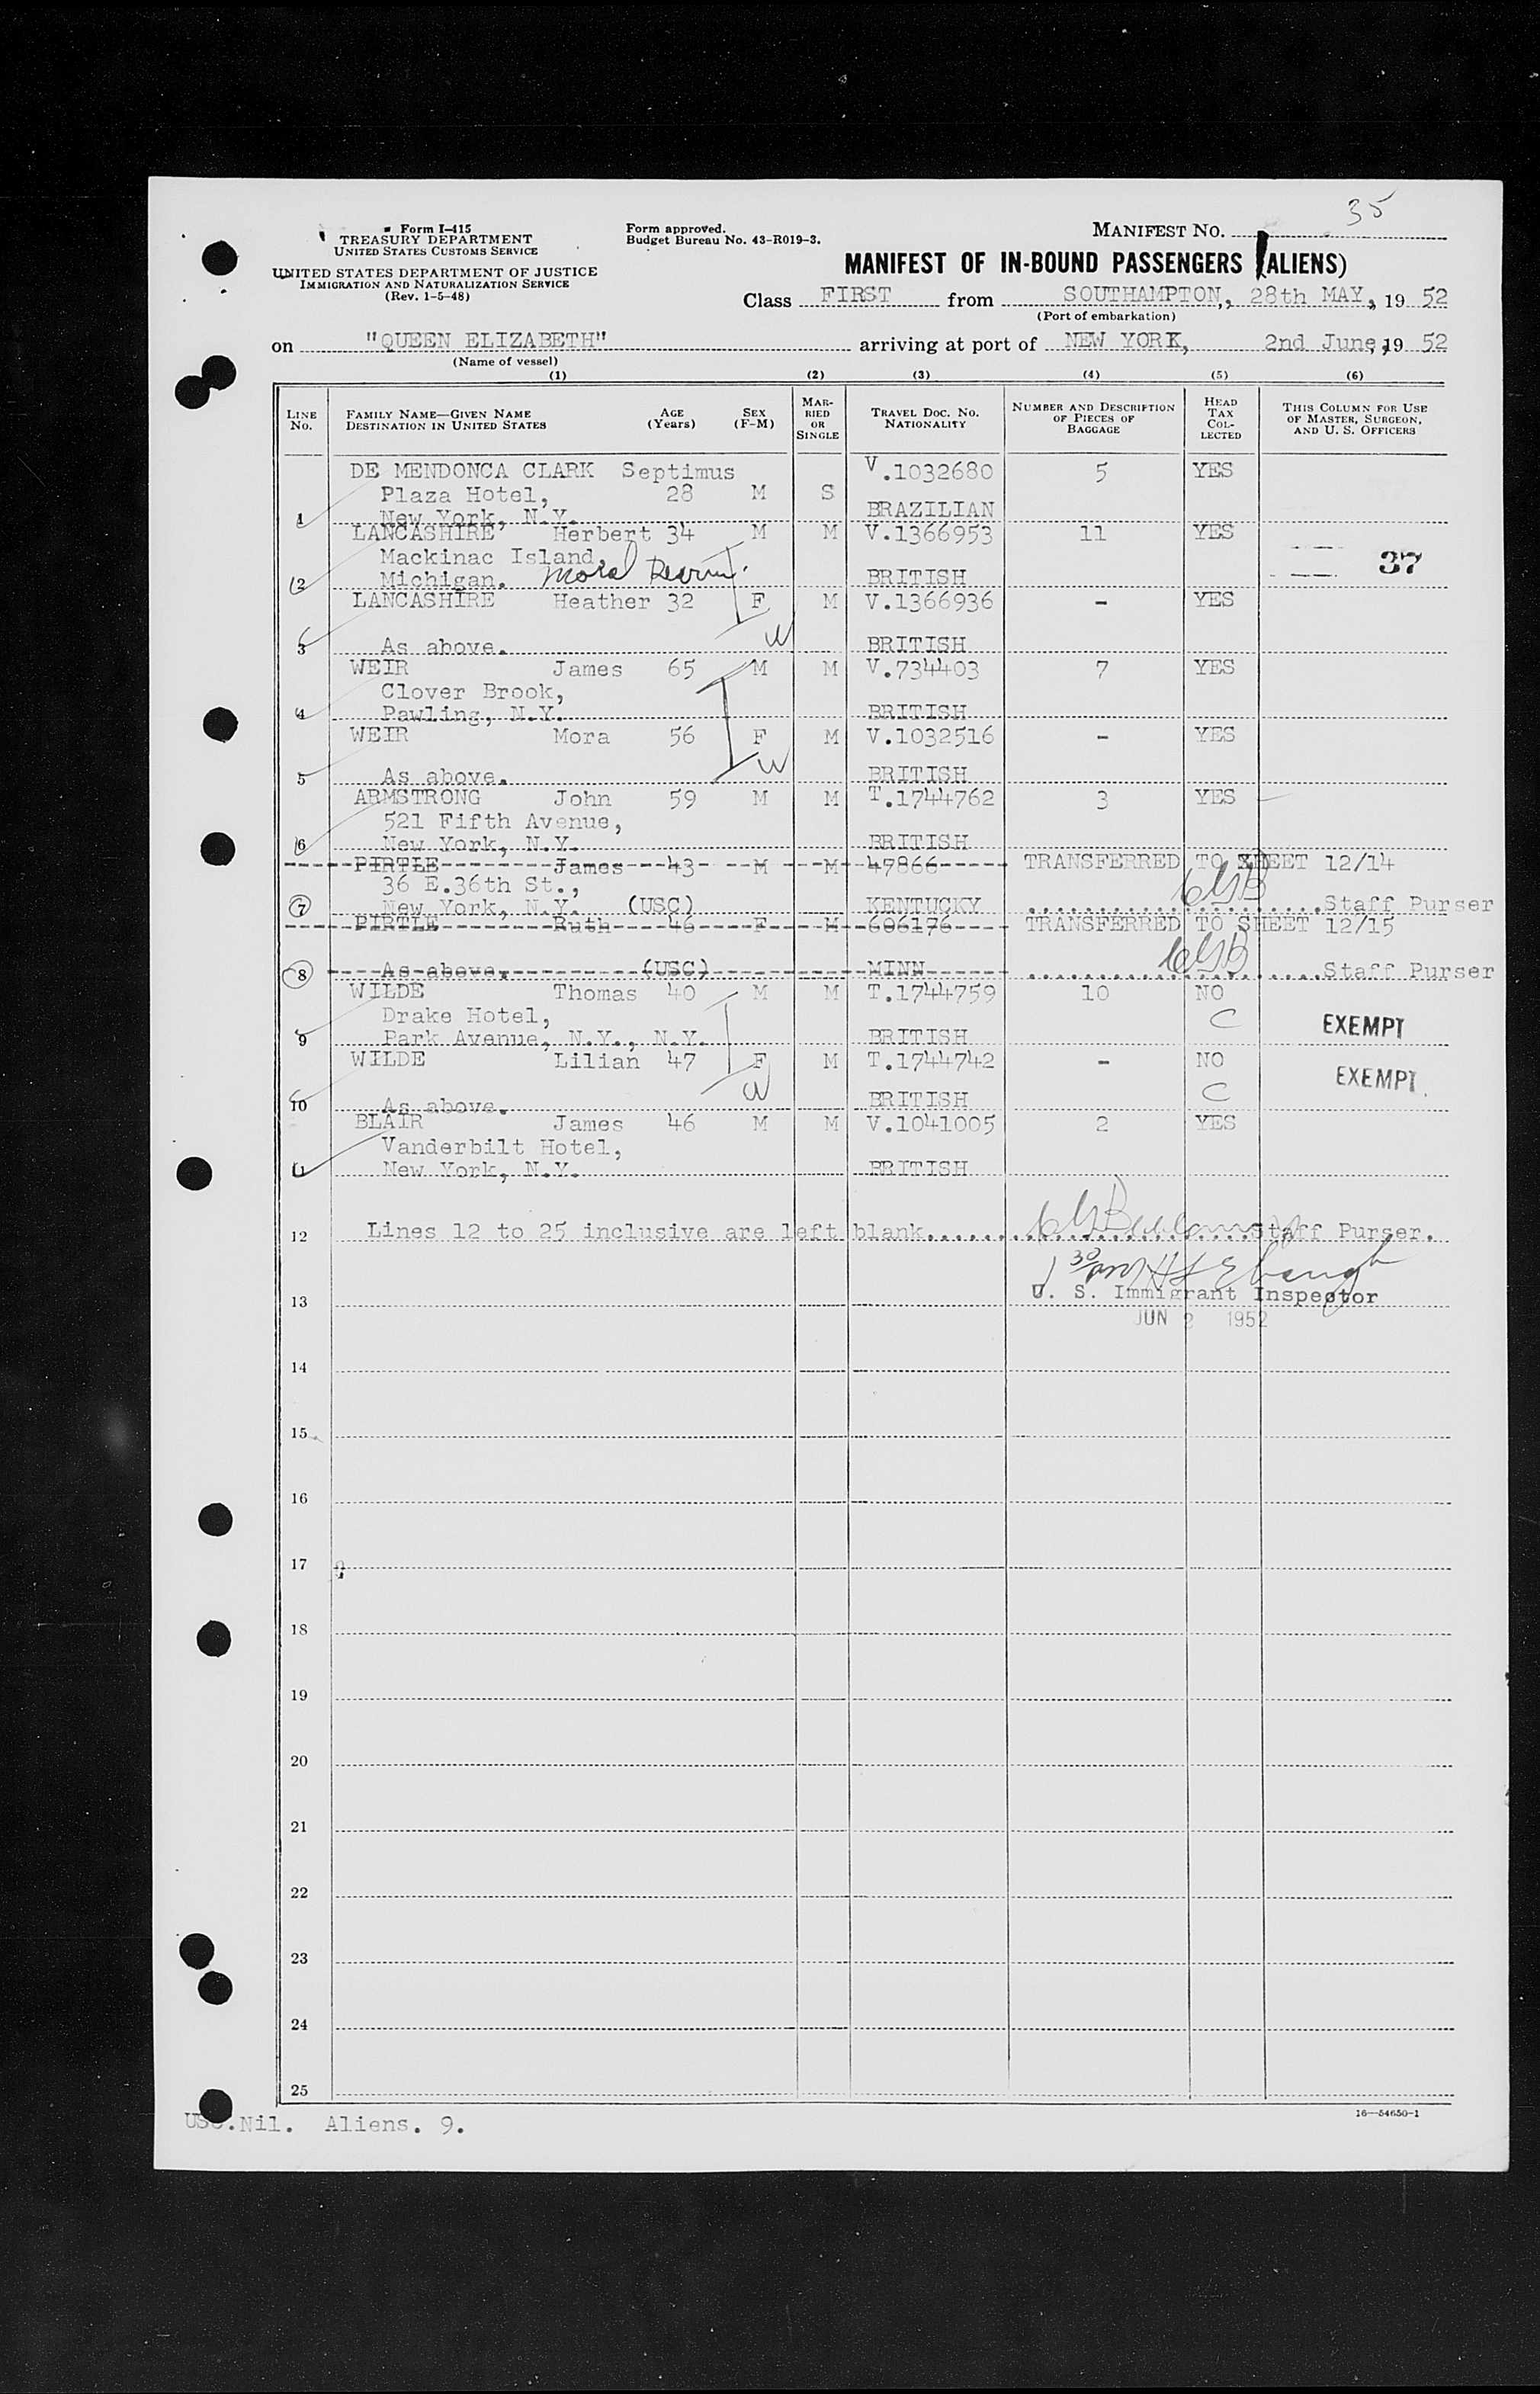 35
Form I-415
TREASURY DEPARTMENT
UNITED STATES CUSTOMS SERVICE
UNITED STATES DEPARTMENT OF JUSTICE
IMMIGRATION AND NATURALIZATION SERVICE
(Rev. 1-5-48)
Form approved.
Budget Bureau No. 43-R019-3.
MANIFEST NO.
MANIFEST OF IN-BOUND PASSENGERS (ALIENS)
Class FIRST from SOUTHAMPTON, 28th MAY, 19 52
(Port of embarkation)
on "QUEEN ELIZABETH" arriving at port of NEW YORK, 2nd June, 19 52
(Name of vessel)
(1) (2) (3) (4) (5) (6)
LINE No. FAMILY NAME—GIVEN NAME DESTINATION IN UNITED STATES AGE (Years) SEX (F-M) MARRIED OR SINGLE TRAVEL DOC. NO. NATIONALITY NUMBER AND DESCRIPTION OF PIECES OF BAGGAGE HEAD TAX COLLECTED THIS COLUMN FOR USE OF MASTER, SURGEON, AND U. S. OFFICERS
DE MENDONCA CLARK Septimus V.1032680 5 YES
Plaza Hotel, 28 M S
1 New York, N.Y. BRAZILIAN
LANCASHIRE Herbert 34 M M V.1366953 11 YES
Mackinac Island, 37
2 Michigan. Moral BRITISH
LANCASHIRE Heather 32 F M V.1366936 - YES
W
3 As above. BRITISH
WEIR James 65 M M V.734403 7 YES
Clover Brook,
4 Pawling, N.Y. BRITISH
WEIR Mora 56 F M V.1032516 - YES
W
5 As above. BRITISH
ARMSTRONG John 59 M M T.1744762 3 YES
521 Fifth Avenue,
6 New York, N.Y. BRITISH
PIRTLE James 43 M M 47866 TRANSFERRED TO SHEET 12/14
36 E.36th St.,
7 New York, N.Y. (USC) KENTUCKY Staff Purser
PIRTLE Ruth 46 F M 606176 TRANSFERRED TO SHEET 12/15
8 As above. (USC) MINN Staff Purser
WILDE Thomas 40 M M T.1744759 10 NO
Drake Hotel, C EXEMPT
9 Park Avenue, N.Y., N.Y. BRITISH
WILDE Lilian 47 F M T.1744742 - NO
W C EXEMPT
10 As above. BRITISH
BLAIR James 46 M M V.1041005 2 YES
Vanderbilt Hotel,
11 New York, N.Y. BRITISH
12 Lines 12 to 25 inclusive are left blank. Staff Purser.
13 U. S. Immigrant Inspector
JUN 2 1952
14
15
16
17
18
19
20
21
22
23
24
25
USC.Nil. Aliens. 9.
16—54650-1